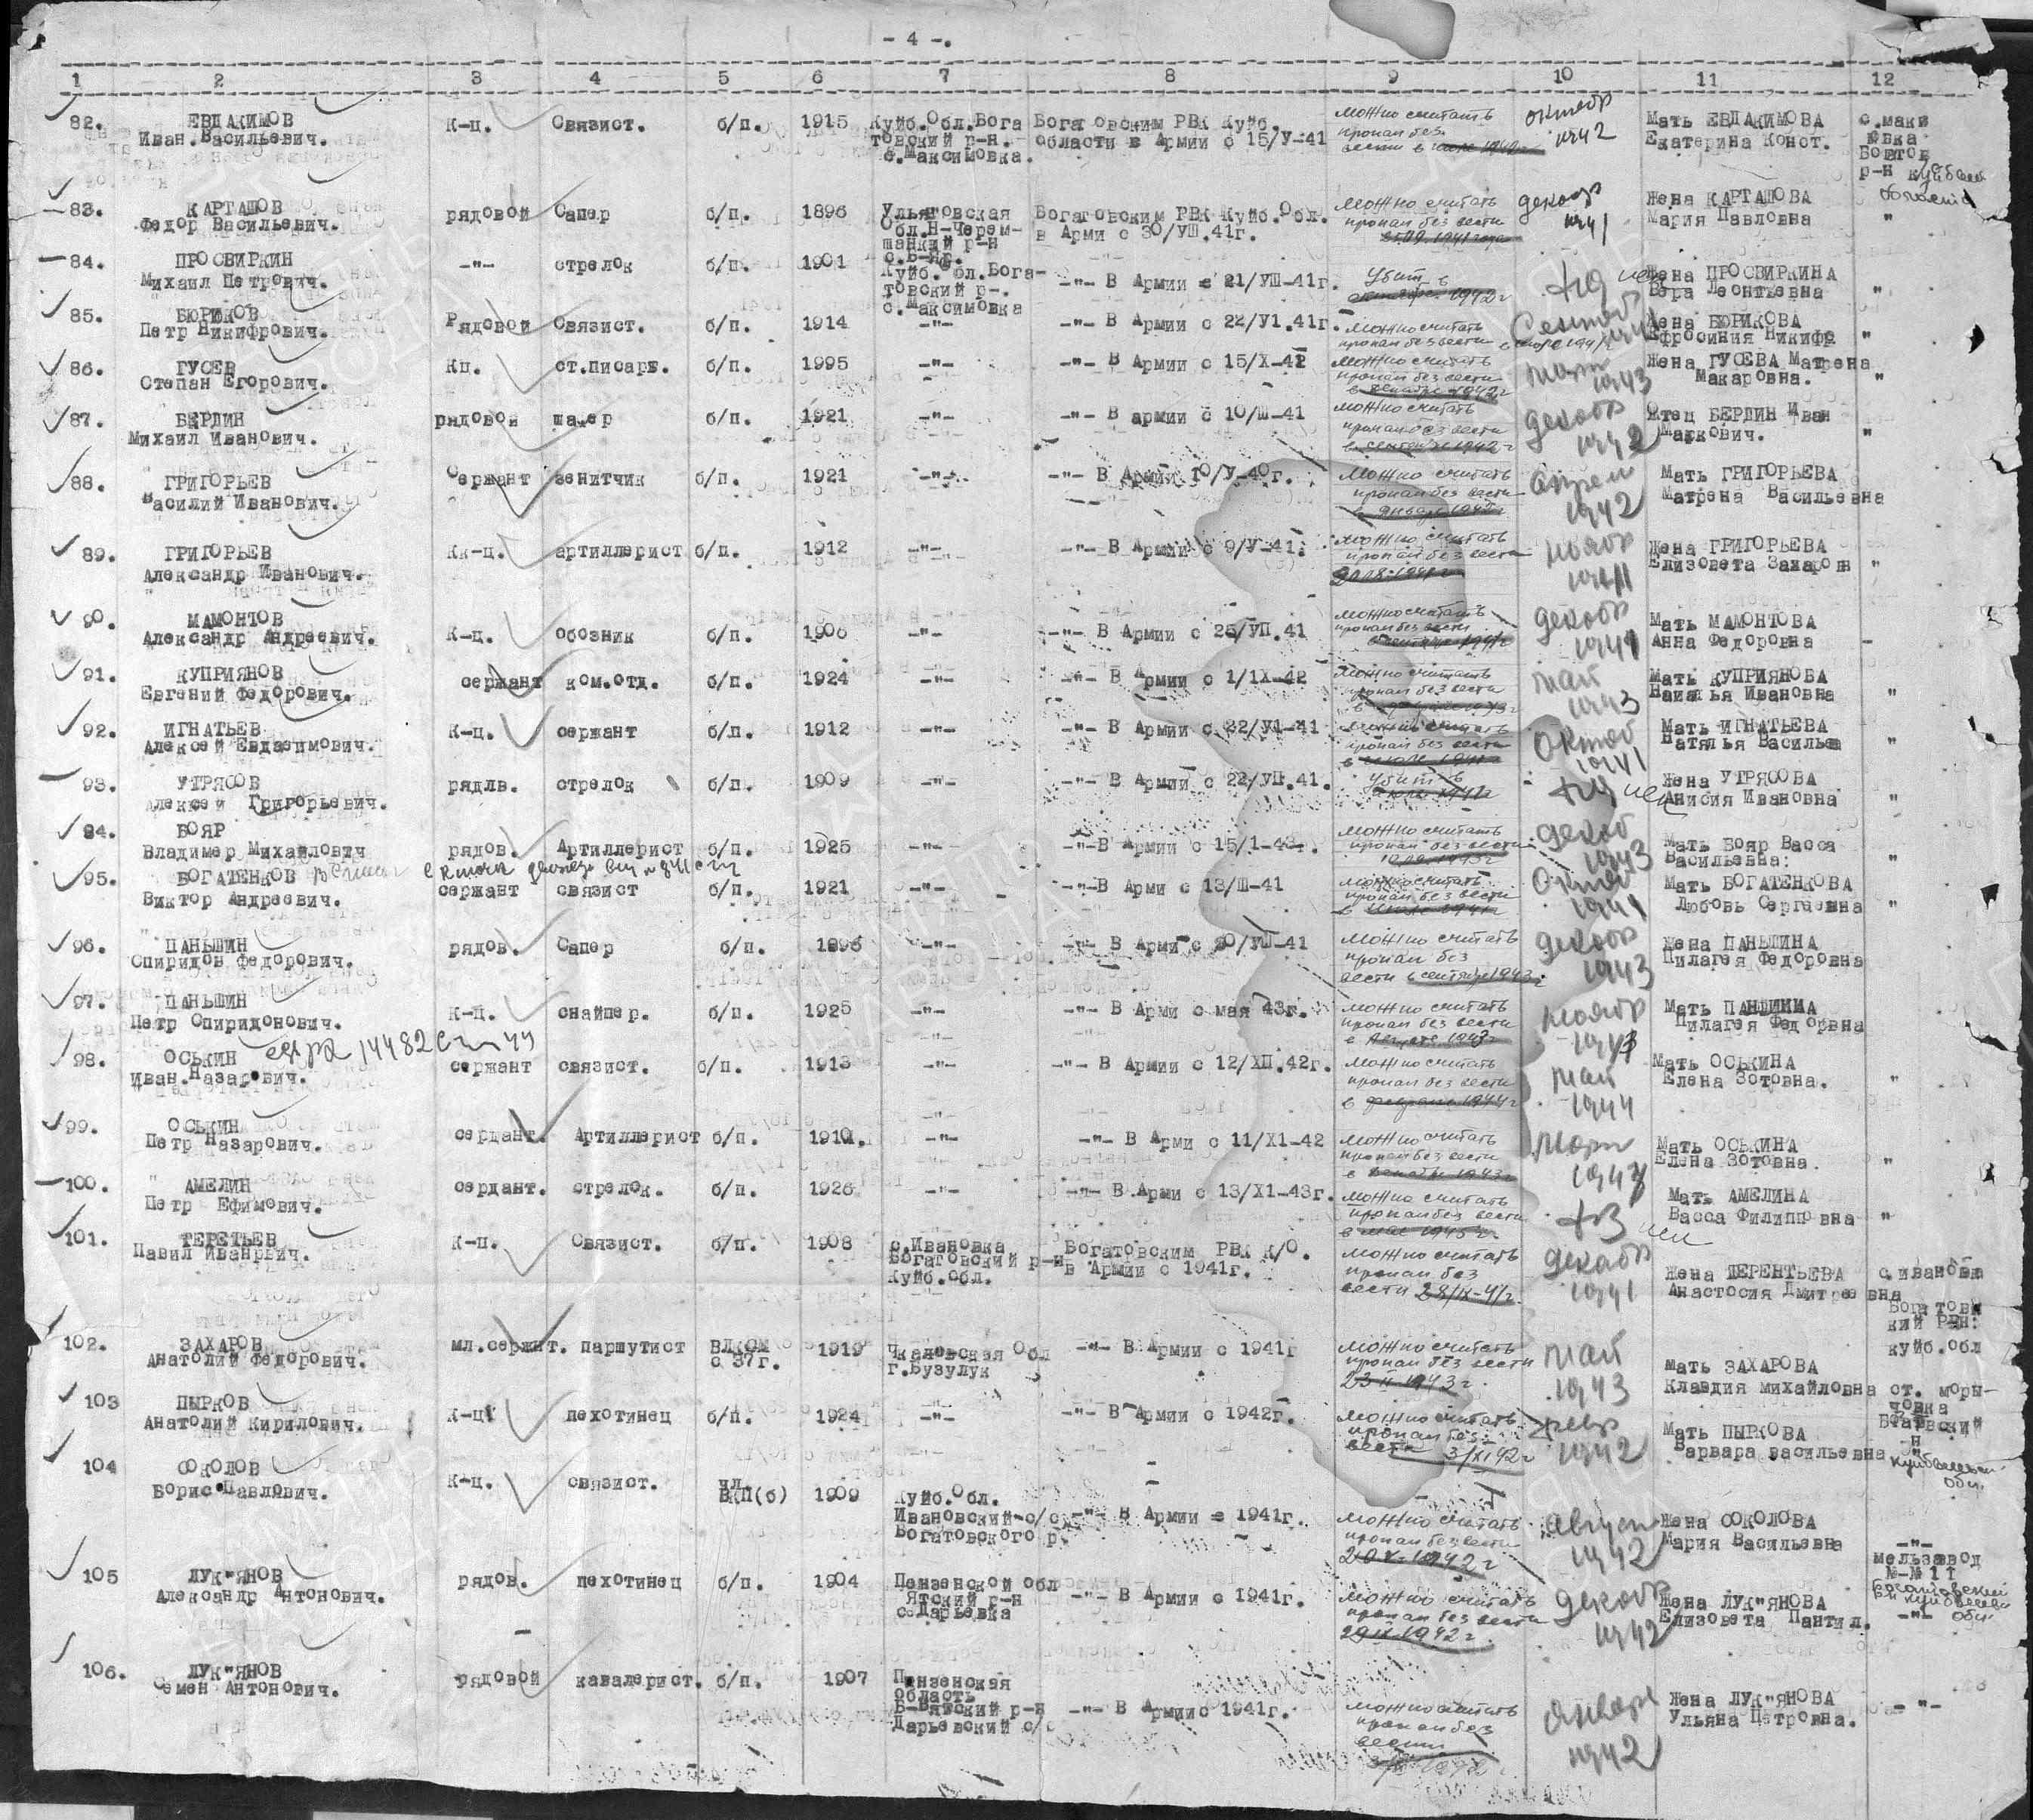 - 4 -.
1 2 3 4 5 6 7 8 9 10 11 12
82. ЕВДАКИМОВ К-ц. Связист. б/п. 1915 Куйб.Обл.Бога Богатовским РВК Куйб. можно считать октябр Мать ЕВДАКИМОВА с.макси
Иван.Васильевич. товский р-н. области в Армии с 15/У-41 пропал без 1942 Екатерина Конст. Богатов
с.Максимовка. вести в р-н Куйбыш
83. КАРТАШОВ рядовой Сапер б/п. 1896 Ульяновская Богатовским РВК Куйб.Обл. можно считать декабр Жена КАРТАШОВА области
Федор Васильевич. Обл.Н-Черем- в Арми с 30/УШ.41г. пропал без вести 1941 Мария Павловна "
шанкий р-н 1941 года
84. ПРОСВИРКИН -"- стрелок б/п. 1901 Куйб.Обл.Бога- -"- В Армии с 21/УШ-41г. Убит в Жена ПРОСВИРКИНА
Михаил Петрович. товский р-. октябре 1942г Вера Леонтьевна "
с.Максимовка
85. БЮРИКОВ Рядовой Связист. б/п. 1914 -"- -"- В Армии с 22/У1.41г. можно считать Сентяб Жена БЮРИКОВА
Петр Никифрович. пропал без вести 1941 Ефросиния Никифр "
86. ГУСЕВ Кц. ст.писарь. б/п. 1995 -"- -"- В Армии с 15/Х-42 можно считать март Жена ГУСЕВА Матрена
Степан Егорович. пропал без вести 1943 Макаровна. "
в декабре 1942г
87. БЕРДИН рядовой б/п. 1921 -"- -"- В армии с 10/Ш-41 можно считать декабр Отец БЕРДИН Иван
Михаил Иванович. пропал без вести 1942 Маркович. "
в сентябре 1942г
88. ГРИГОРЬЕВ Сержант зенитчик б/п. 1921 -"- -"- В Армии 10/У-40г. можно считать апрель Мать ГРИГОРЬЕВА
Василий Иванович. пропал без вести 1942 Матрена Васильевна
в январе 1942г
89. ГРИГОРЬЕВ Кк-ц. артиллерист б/п. 1912 -"- -"- В Армии с 9/У-41. можно считать ноябр Жена ГРИГОРЬЕВА
Александр Иванович. пропал без вести 1941 Елизовета Захаров "
90. МАМОНТОВ К-ц. обозник б/п. 1906 -"- -"- В Армии с 26/УП.41 можно считать декабр Мать МАМОНТОВА
Александр Андреевич. пропал без вести 1941 Анна Федоровна -
91. КУПРИЯНОВ сержант ком.отд. б/п. 1924 -"- -"- В Армии с 1/1Х-42 можно считать май Мать КУПРИЯНОВА
Евгений Федорович. пропал без вести 1943 Наталья Ивановна "
92. ИГНАТЬЕВ К-ц. сержант б/п. 1912 -"- -"- В Армии с 22/У1-41 можно считать Октяб Мать ИГНАТЬЕВА
Алексей Евдакимович. пропал без вести 1941 Наталья Василье "
в июле 1941г
93. УТРЯСОВ рядлв. стрелок б/п. 1909 -"- -"- В Армии с 22/УП.41. Убит в Жена УТРЯСОВА
Алексей Григорьевич. Анисия Ивановна "
94. БОЯР рядов. Артиллерист б/п. 1925 -"- -"-В Армии с 15/1-43. можно считать декаб Мать Бояр Васса
Владимер Михайлович пропал без вести 1943 Васильевна: "
95. БОГАТЕНКОВ сержант связист б/п. 1921 -"- -"-В Арми с 13/Ш-41 можно считать октяб Мать БОГАТЕНКОВА
Виктор Андреевич. пропал без вести 1941 Любовь Сергеевна "
в июле 1941г
96. ПАНЬШИН рядов. Сапер б/п. 1896 -"- -"- В Арми с 30/УШ-41 можно считать декабр Жена ПАНЬШИНА
Спиридов Федорович. пропал без 1943 Пилагея Федоровна
вести в сентябре 1943г.
97. ПАНЬШИН К-ц. снайпер. б/п. 1925 -"- -"- В Арми с мая 43г. можно считать ноябр Мать ПАНШИНА
Петр Спиридонович. пропал без вести 1943 Пилагея Федорвна
в Августе 1943г
98. ОСЬКИН 14482 сержант связист. б/п. 1913 -"- -"- В Армии с 12/ХП.42г. можно считать май Мать ОСЬКИНА
Иван.Назарович. пропал без вести 1944 Елена Зотовна. "
в феврале 1944г
99. ОСЬКИН сердант. Артиллерист б/п. 1910. -"- -"- В Арми с 11/Х1-42 можно считать март Мать ОСЬКИНА
Петр Назарович. пропал без вести Елена Зотовна. "
в декабре 1943г
100. АМЕЛИН сердант. стрелок. б/п. 1926 -"- -"- В.Арми с 13/Х1-43г. можно считать Мать АМЕЛИНА
Петр Ефимович. пропал без вести Васса Филипповна "
в мае 1945г.
101. ТЕРЕТЬЕВ К-ц. Связист. б/п. 1908 с.Ивановка Богатовским РВК К/О. можно считать декабр Жена ТЕРЕНТЬЕВА с.ивановка
Павил Иванрвич. Богатовский р-н в Армии с 1941г. пропал без 1941 Анастосия Дмитреевна Богатовс
Куйб.обл. вести 28/IX-41г. кий Р-н:
102. ЗАХАРОВ мл.сержнт. паршутист ВЛКОМ 1919 Чкаловская Обл -"- В Армии с 1941г можно считать май Мать ЗАХАРОВА куйб.обл
Анатолий Федорович. с 37г. г.Бузулук пропал без вести 1943 Клавдия михайловна ст. моры-
23 II 1943г. човка
103 ПЫРКОВ К-ц. пехотинец б/п. 1924 -"- -"- В Армии с 1942г. можно считать февр Мать ПЫРКОВА
Анатолий Кирилович. пропал без 1942 Варвара васильевна
вести 3/XI 42г Куйбышевс обл.
104 СОКОЛОВ К-ц. связист. чл. 1909 Куйб.Обл. -"- В Армии с 1941г. можно считать август Жена СОКОЛОВА
Борис Павлович. ВКП(б) Ивановский-с/с пропал без вести 1942 Мария Васильевна -"-
Богатовского р. 1942г
105 ЛУК"ЯНОВ рядов. пехотинец б/п. 1904 Пензенской обл -"- В Армии с 1941г. можно считать декаб Жена ЛУК"ЯНОВА мельзавод
Александр Антонович. ятский р-н пропал без вести 1942 Елизовета Пантил. №-№11
с.Дарьевка 1942г. Богатовский
-"- обл.
106. ЛУК"ЯНОВ рядовой кавалерист. б/п. 1907 Пензенская -"- В Армиис 1941г. можно считать январь Жена ЛУК"ЯНОВА -"-
Семен Антонович. область пропал без 1942 Ульяна Петровна.
Б-Вятский р-н вести
Дарьевский с/с